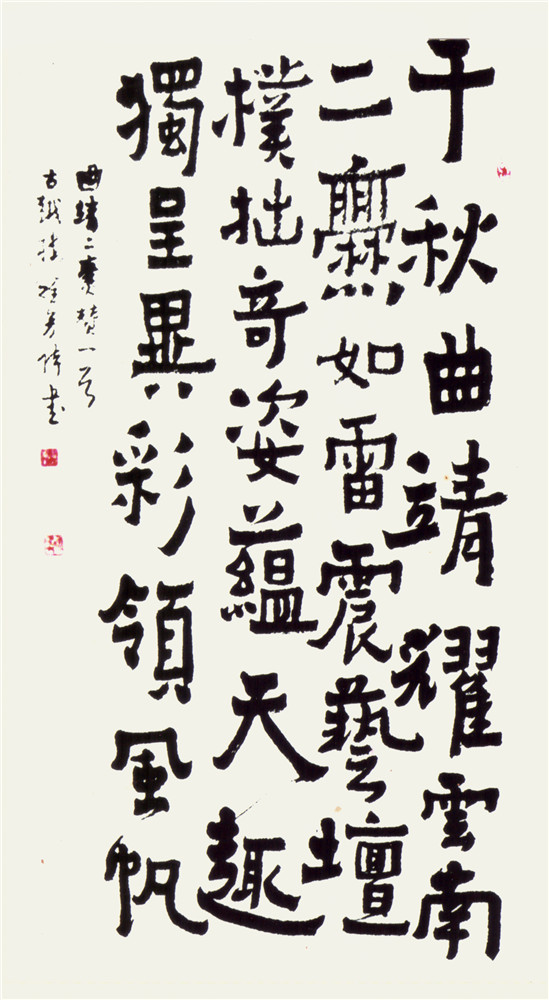 千秋曲靖耀雲南
二爨如雷震藝壇
樸拙奇姿蘊天趣
獨呈異彩領風帆
曲靖二爨贊一首
古越 書